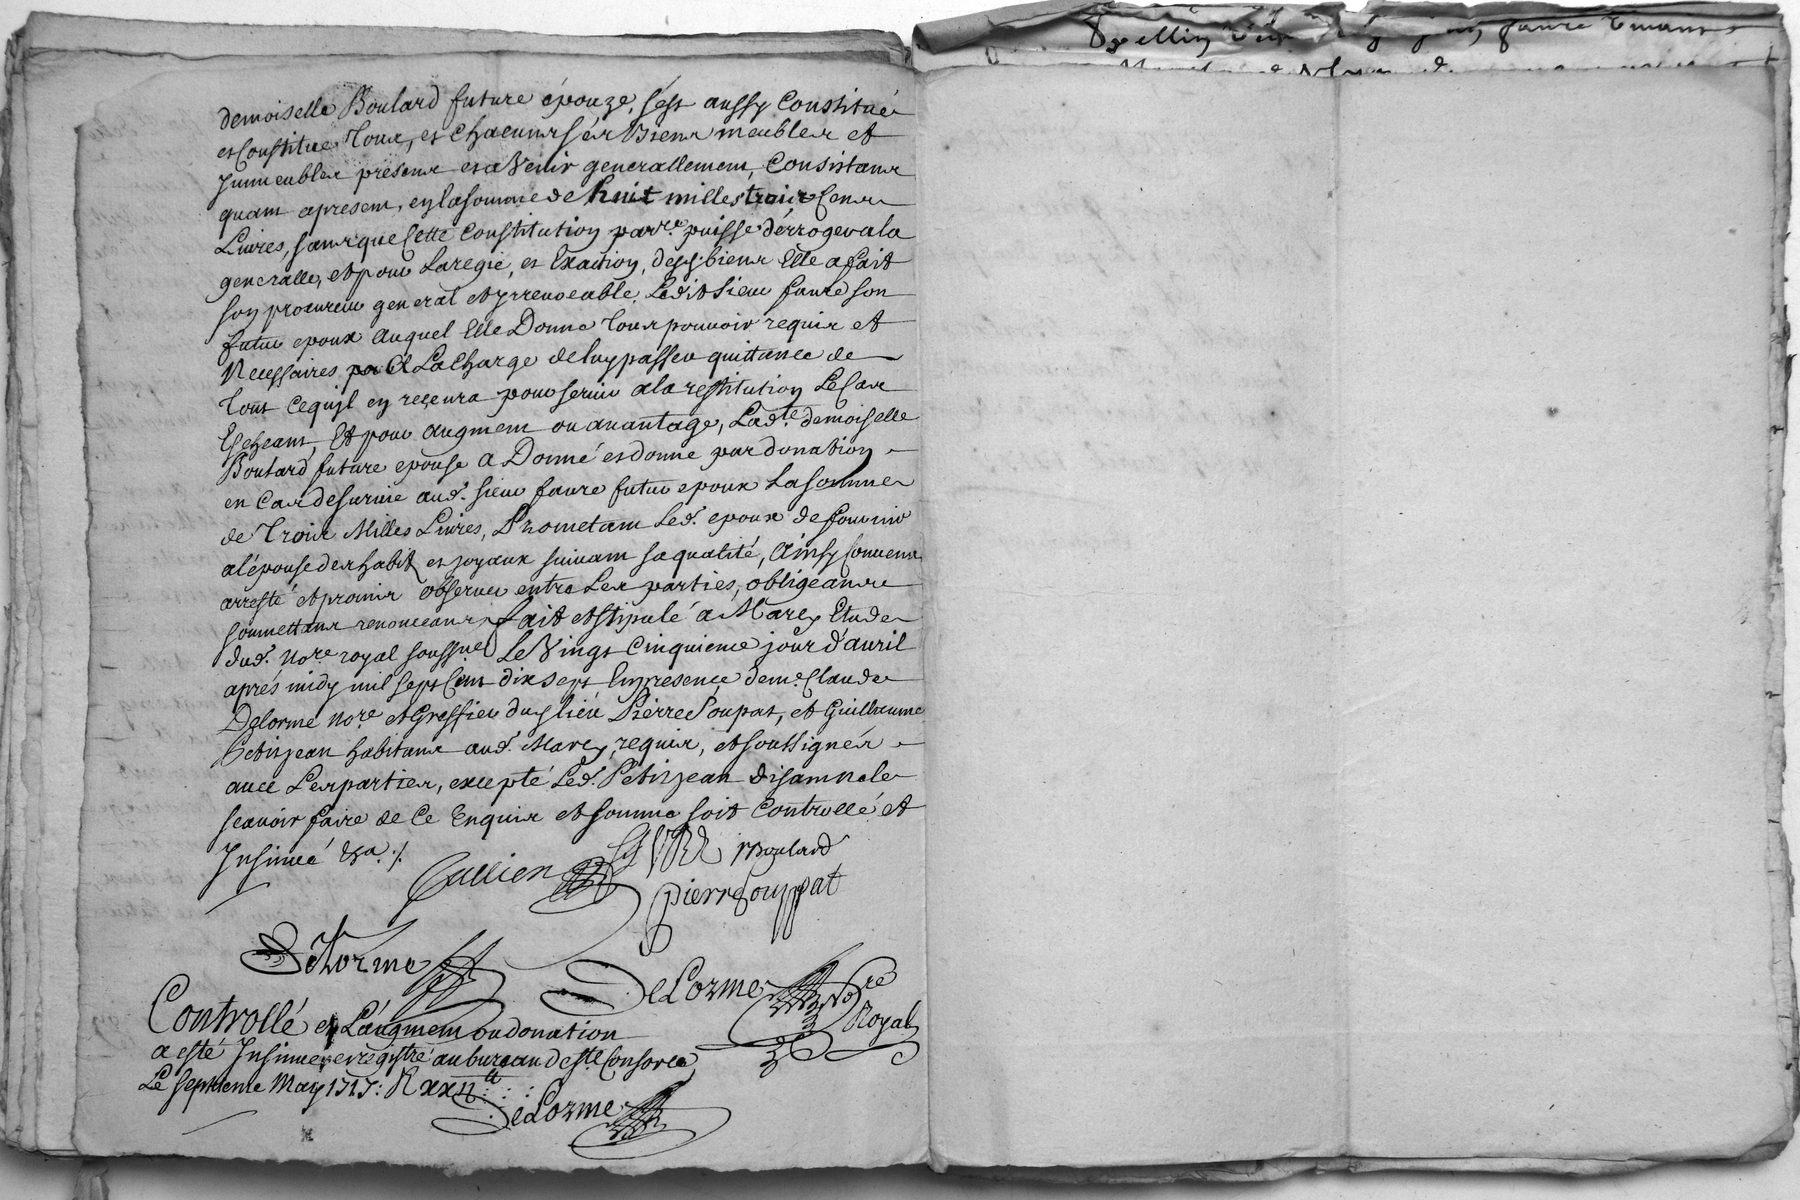 demoiselle Boulard future épouze, s'est aussy Constitué
et Constitue Tous, et Chacuns ses Biens meubles et
Immeubles presens et a Venir generallement, Consistans
quant apresent, en la somme de huit milles trois Cens
Livres, sans que Cette Constitution parre. puisse dérroger a la
generalle, et pour La regie, et Exaction, desds. biens Elle a fait
son procureur general et irrevocable Ledit sieur faure son
futur epoux Auquel Elle Donne Tous pouvoir requis et
Necessaires A La Charge de luy passer quittance de
Tout Ce qu'il en recevra pour servir a la restitution Le Cas
Escheant, Et pour augment ou avantage, Ladte. demoiselle
Boulard future epouse a Donné et donne par donation
en Cas de survie aud. sieur faure futur epoux La somme
de Trois Milles Livres, Prometant Led. epoux de fournir
a l'épouse des habit et joyaux suivant sa qualité, Ainsy Convenu
arresté et promis observer entre Les parties, obligeans
soumettans renonceans, fait et stipulé a Marcy Etude
dud. nore. royal soussné Le Vingt Cinquieme jour d'avril
aprés midy mil sept Cent dix sept En presence de me. Claude
Delorme nore. et Greffier dud. lieu Pierre Soupat, et Guillaume
Petitjean habitans aud. Marcy, requis, et soussignés
avec Les parties, excepté Led. Petitjean disant ne le
scavoir faire de Ce Enquis et sommé soit Controllé et
Insinué &a ./.
Jullien
Boulard
pierre Souppat
DeLorme
DeLorme Nore
Royal
Controllé et L'augment ou donation
a esté Insinue enregistré au bureau de Ste. Consorce
Le septieme May 1717:
DeLorme